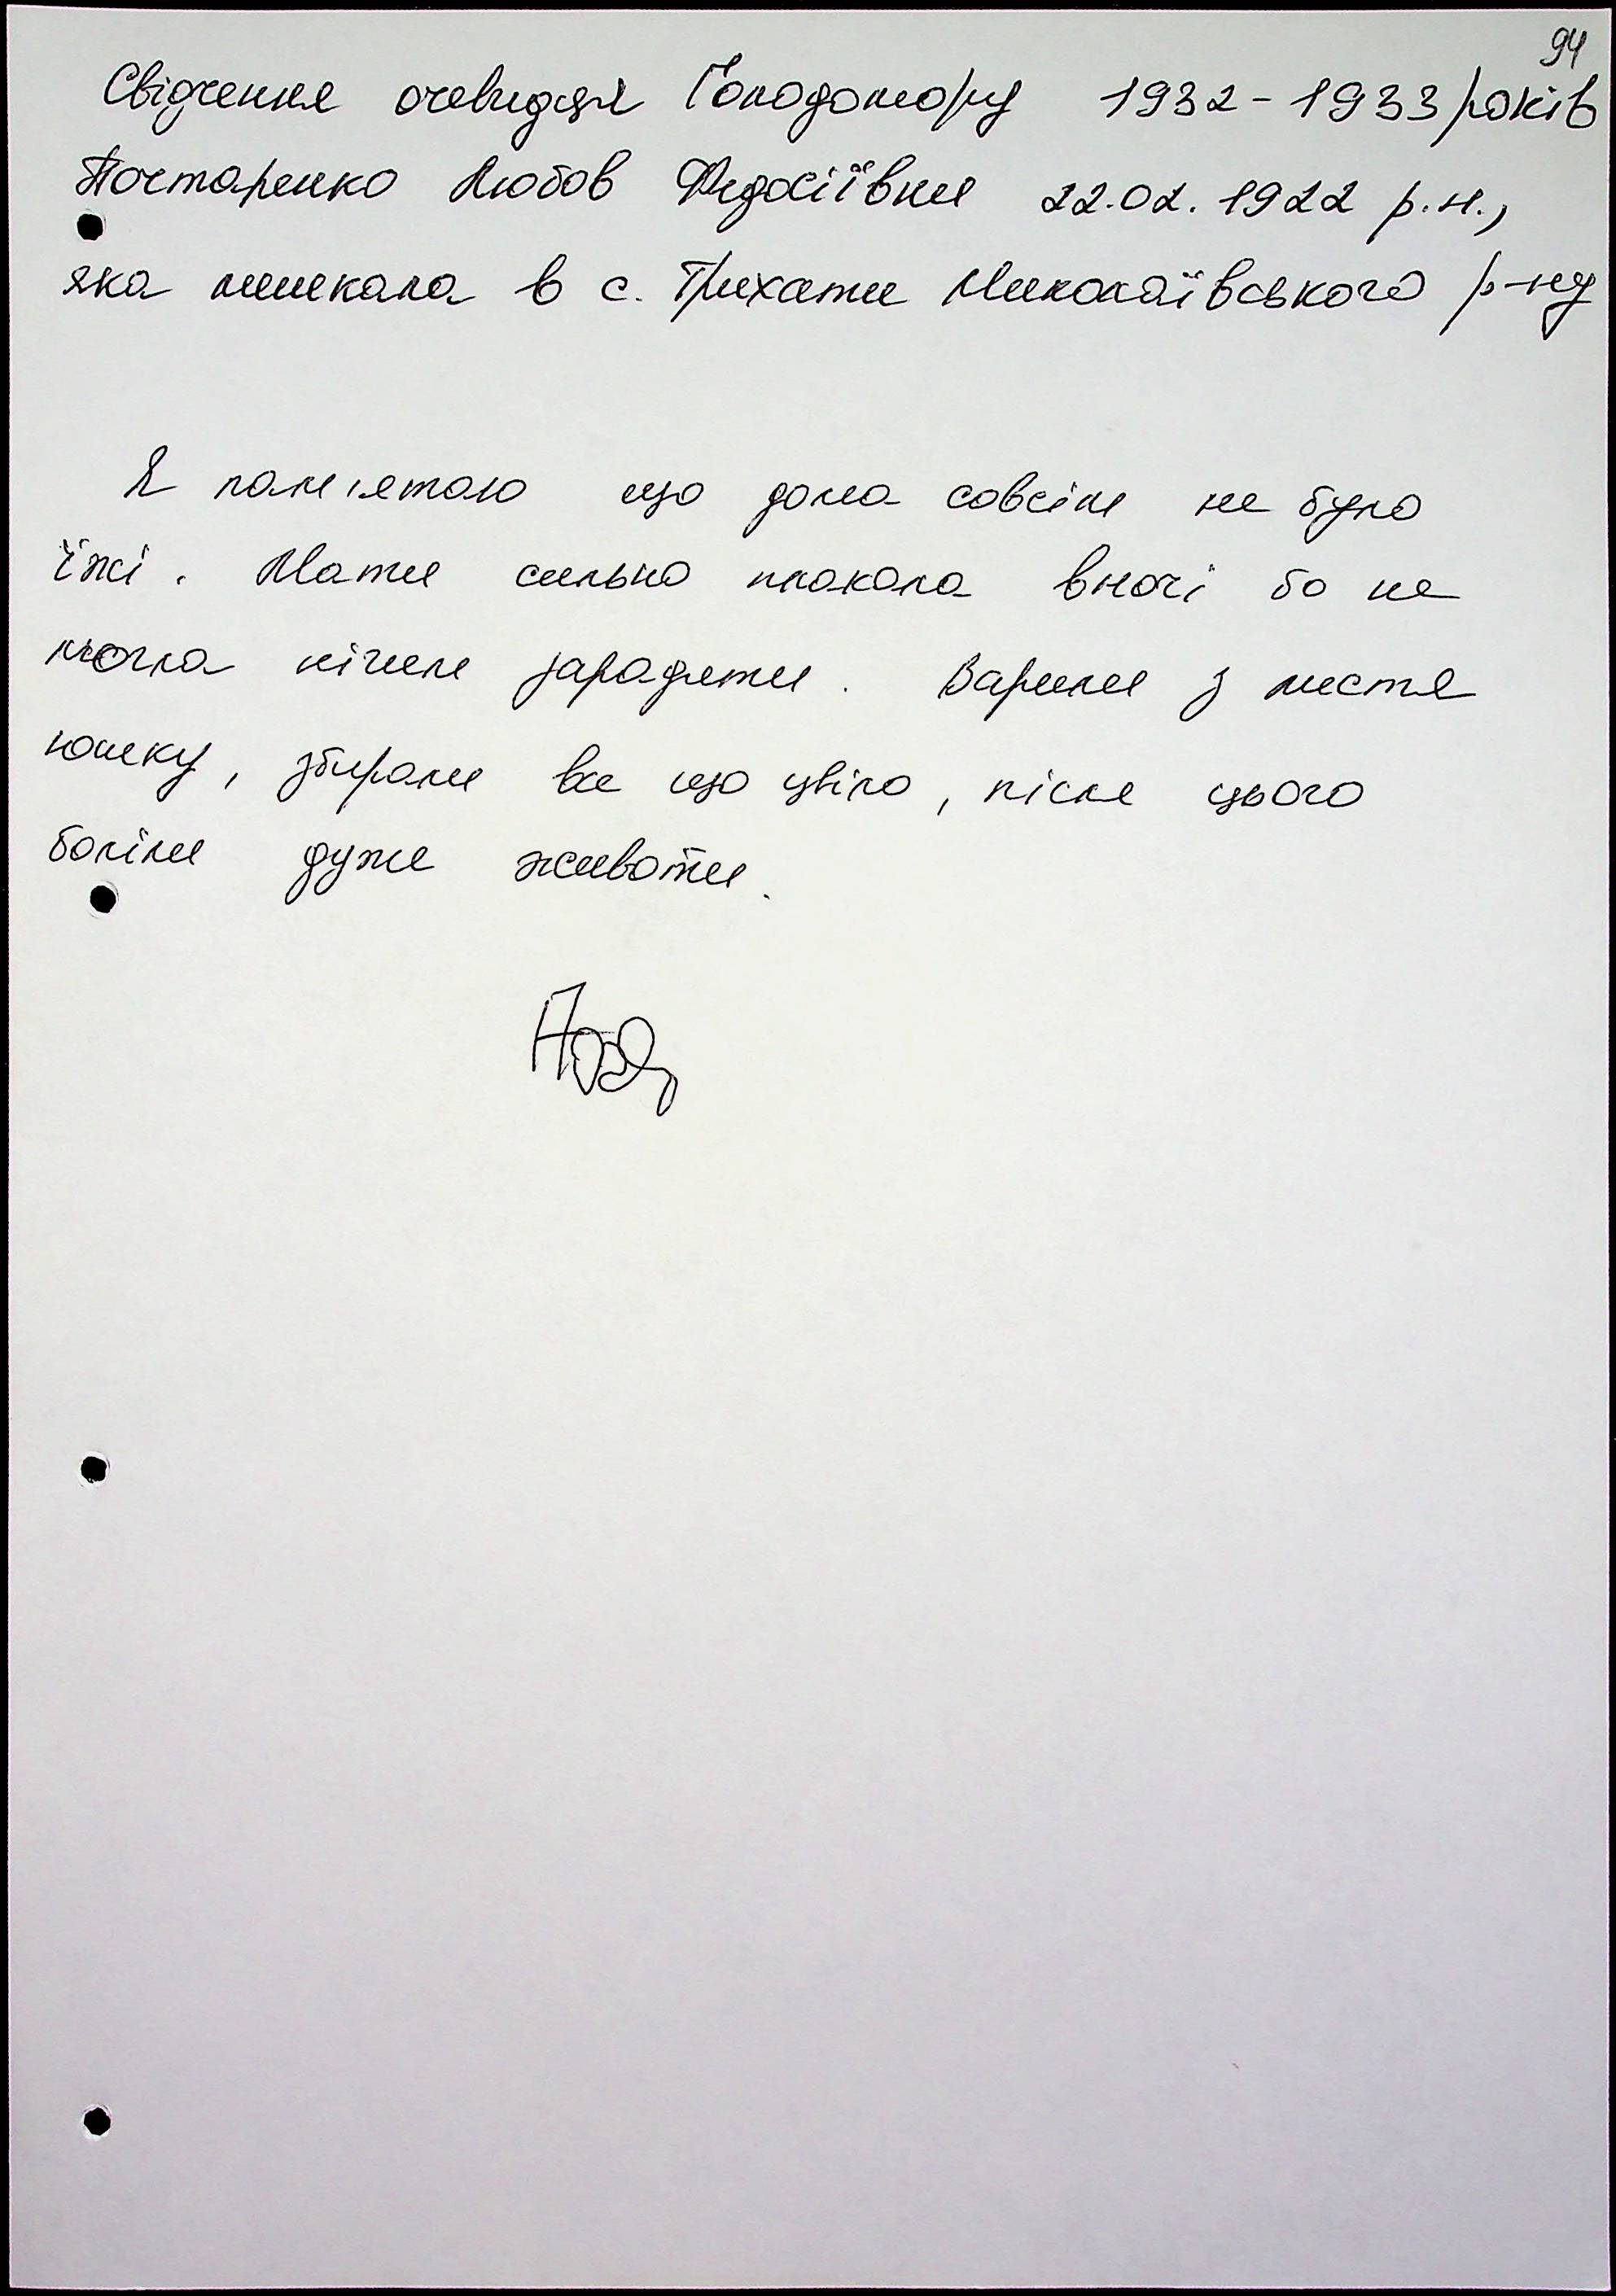 94
Свідчення очевидця Голодомору 1932-1933 років
Почтаренко Любов Федосіївни 22.02.1922 р.н.,
яка мешкала в с. Трихати Миколаївського р-ну
Я пам'ятаю що дома совсім не було
їжі. Мати сильно плакала вночі бо не
могла нічим зарадити. Варили з листя
юшку, збирали все що цвіло, після цього
боліли дуже животи.